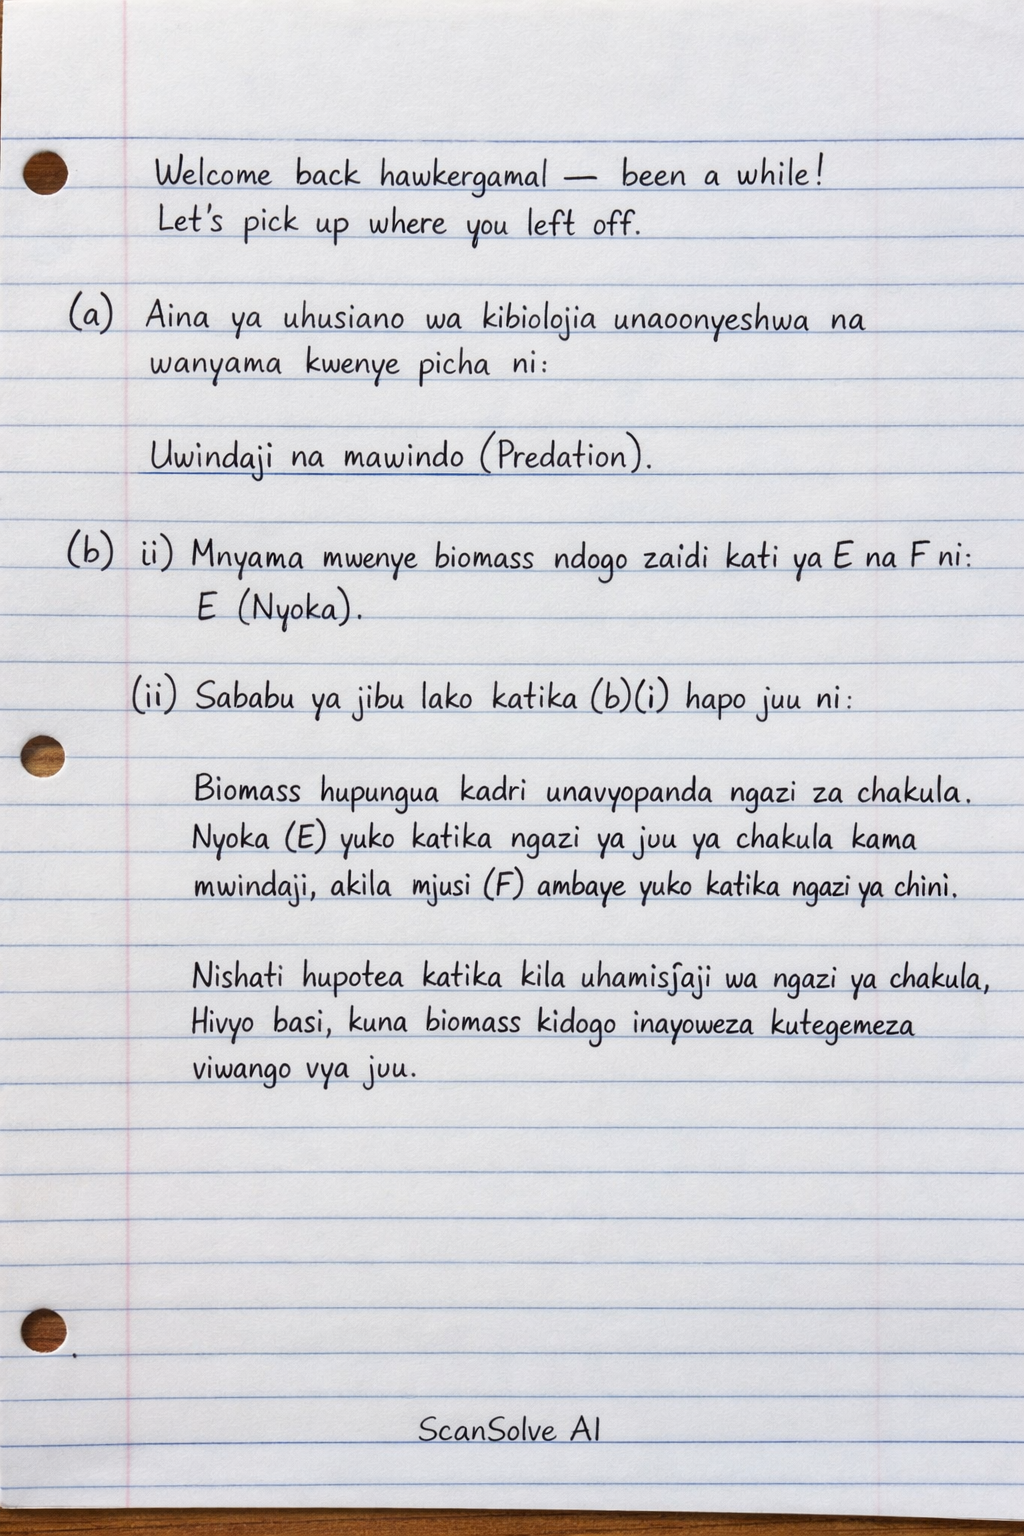 Welcome back hawkergamal — been a while!
Let's pick up where you left off.
(a) Aina ya uhusiano wa kibiolojia unaoonyeshwa na
wanyama kwenye picha ni:
Uwindaji na mawindo (Predation).
(b) ii) Mnyama mwenye biomass ndogo zaidi kati ya E na F ni:
E (Nyoka).
(ii) Sababu ya jibu lako katika (b)(i) hapo juu ni:
Biomass hupungua kadri unavyopanda ngazi za chakula.
Nyoka (E) yuko katika ngazi ya juu ya chakula kama
mwindaji, akila mjusi (F) ambaye yuko katika ngazi ya chini.
Nishati hupotea katika kila wa ngazi ya chakula,
Hivyo basi, kuna biomass kidogo inayoweza kutegemeza
viwango vya juu.
ScanSolve AI